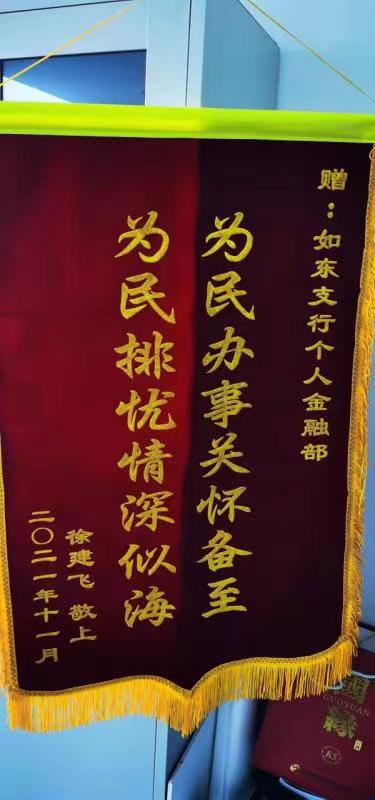 赠：如东支行个人金融部
为民办事关怀备至
为民排忧情深似海
徐建飞 敬上
二〇二一年十一月
GUOYUAN
KS